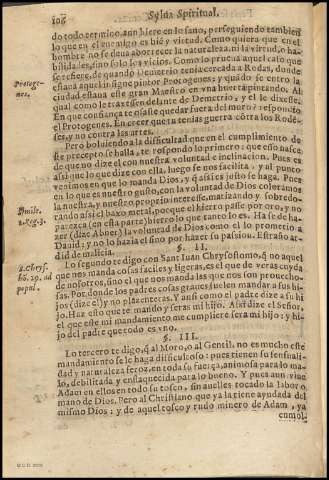 106 Sylua Spiritual.
do todo termino, aun hiere en lo sano, persiguiendo tambien
lo que en el enemigo es bié y virtud. Como quiera que en el
hombre no se deua aborrecer la naturaleza, ni la virtud, o ha-
bilidades, sino solo los vicios. Como lo prueua aquel caso que
se refiere, de quando Demetrio tenia cercada a Rodas, donde
estaua aquel insigne pintor Protogenes; y quādo se entro la
ciudad, estaua este gran Maestro en vna huerta pintando. Al
qual como le traxessen delante de Demetrio, y el le dixesse.
En que confiança te osaste quedar fuera del muro? respondio
el Protogenes. En creer que tu tenias guerra cōtra los Rodes-
ses, y no contra las artes.
Protoge-
nes.
Pero boluiendo a la difficultad que en el cumplimiento de
este precepto se halla, te respondo lo primero: que esso nasce
de que no dize el con nuestra voluntad e inclinacion. Pues es
assi que lo que dize con ella, luego se nos facilita, y al punto
venimos en que lo manda Dios, y q̃ assi es justo se haga. Pore
en lo que es nuestro gusto, con la voluntad de Dios coloramos
la nuestra, y nuestro proprio interesse, matizando y sobredo-
rando assi el baxo metal, porque el hierro passe por oro, y no
parezca (en esta parte) hierro lo que tanto lo es. Ha se de ha-
zer (dize Abner) la voluntad de Dios como el lo prometio a
Dauid: y no lo hazia el sino por hazer su passion. Estraño ar-
did de malicia.
2.Reg.3.
§. II.
Lo segundo te digo con San Juan Chrysostomo, q̃ no aquel
que nos manda cosas faciles y ligeras, es el que de veras cuyda
de nosotros, sino el que nos manda las que nos son prouecho-
sas. Por donde los padres cosas graues suelen mandar a sus hi-
jos (dize el) y no plazenteras. Y ansi como el padre dize a su hi
jo. Haz esto que te mando y seras mi hijo. Assi dize el Señor,
el que este mi mandamiento me cumpliere sera mi hijo: y hi-
jo del padre que todo es vno.
S.Chrys.
ho. 29. ad
popul.
§. III.
Lo tercero te digo, q̃ al Moro, o al Gentil, no es mucho este
mandamiento se le haga dificultoso: pues tienen su sensuali-
dad y naturaleza feroz, en toda su fuerça, animosa para lo ma-
lo, debilitada y ensaquecida para lo bueno. Y pues aun viue
Adam en ellos en todo su tosco, sin auelles tocado la labor o
mano de Dios. Pero al Christiano que ya la tiene ayudada del
mismo Dios: y de aquel tosco y rudo minero de Adam, ya
enmol-